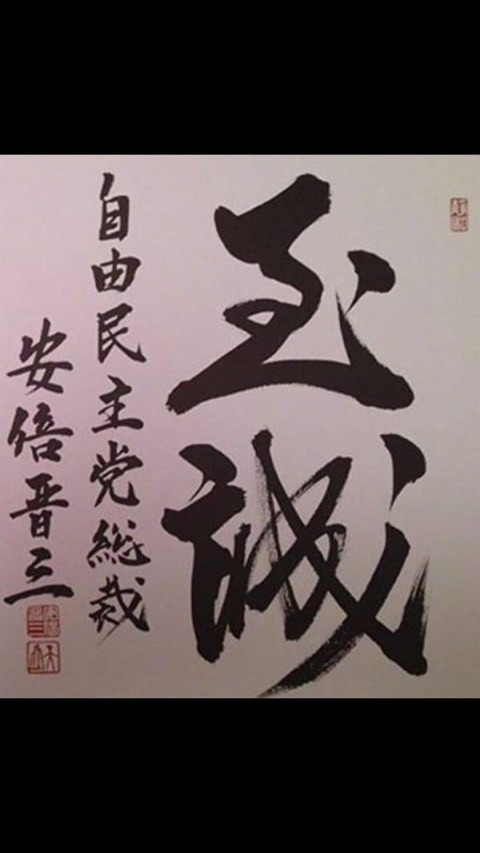 至誠
自由民主党総裁
安倍晋三